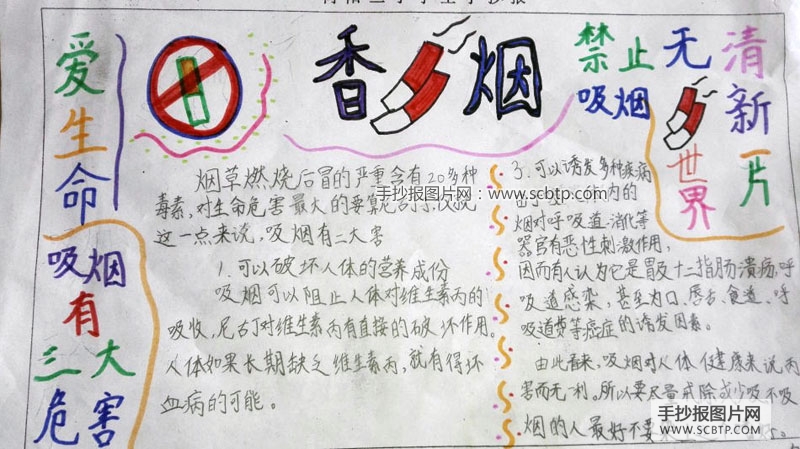 爱生命
吸烟
有
三大
危害
香烟
禁止
吸烟
无
世界
清新一片
烟草燃烧后冒的严重含有20多种
毒素,对生命危害最大的要算尼古丁,仅就
这一点来说,吸烟有二大害
1.可以破坏人体的营养成份
吸烟可以阻止人体对维生素丙的
吸收,尼古丁对维生素丙有直接的破坏作用。
人体如果长期缺乏维生素丙,就有得坏
血病的可能。
3.可以诱发多种疾病
内的
烟对呼吸道、消化等
器官有恶性刺激作用,
因而有人认为它是胃及十二指肠溃疡,呼
吸道感染,甚至为口、唇舌、食道、呼
吸道等癌症的诱发因素。
由此看来,吸烟对人体健康来说丙
害而无利。所以要尽量戒除或少吸不吸
烟的人最好不要
手抄报图片网:www.scbtp.com
手抄报图片网
WWW.SCBTP.COM